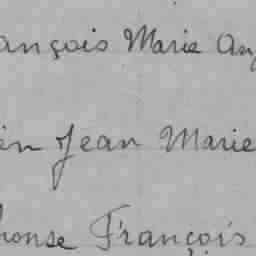 ançois Marie Ang
en Jean Marie
honse François